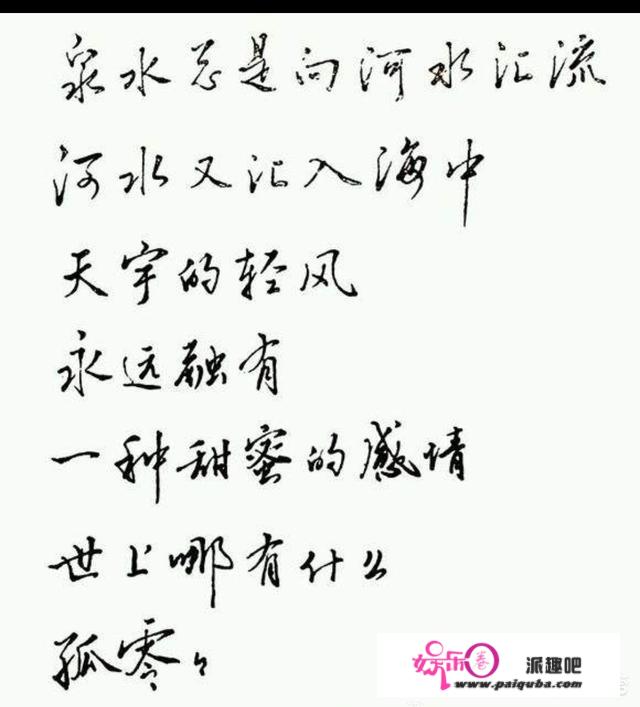 泉水总是向河水汇流
河水又汇入海中
天宇的轻风
永远融有
一种甜蜜的感情
世上哪有什么
孤零々
娱乐卷
派趣吧
www.paiquba.com